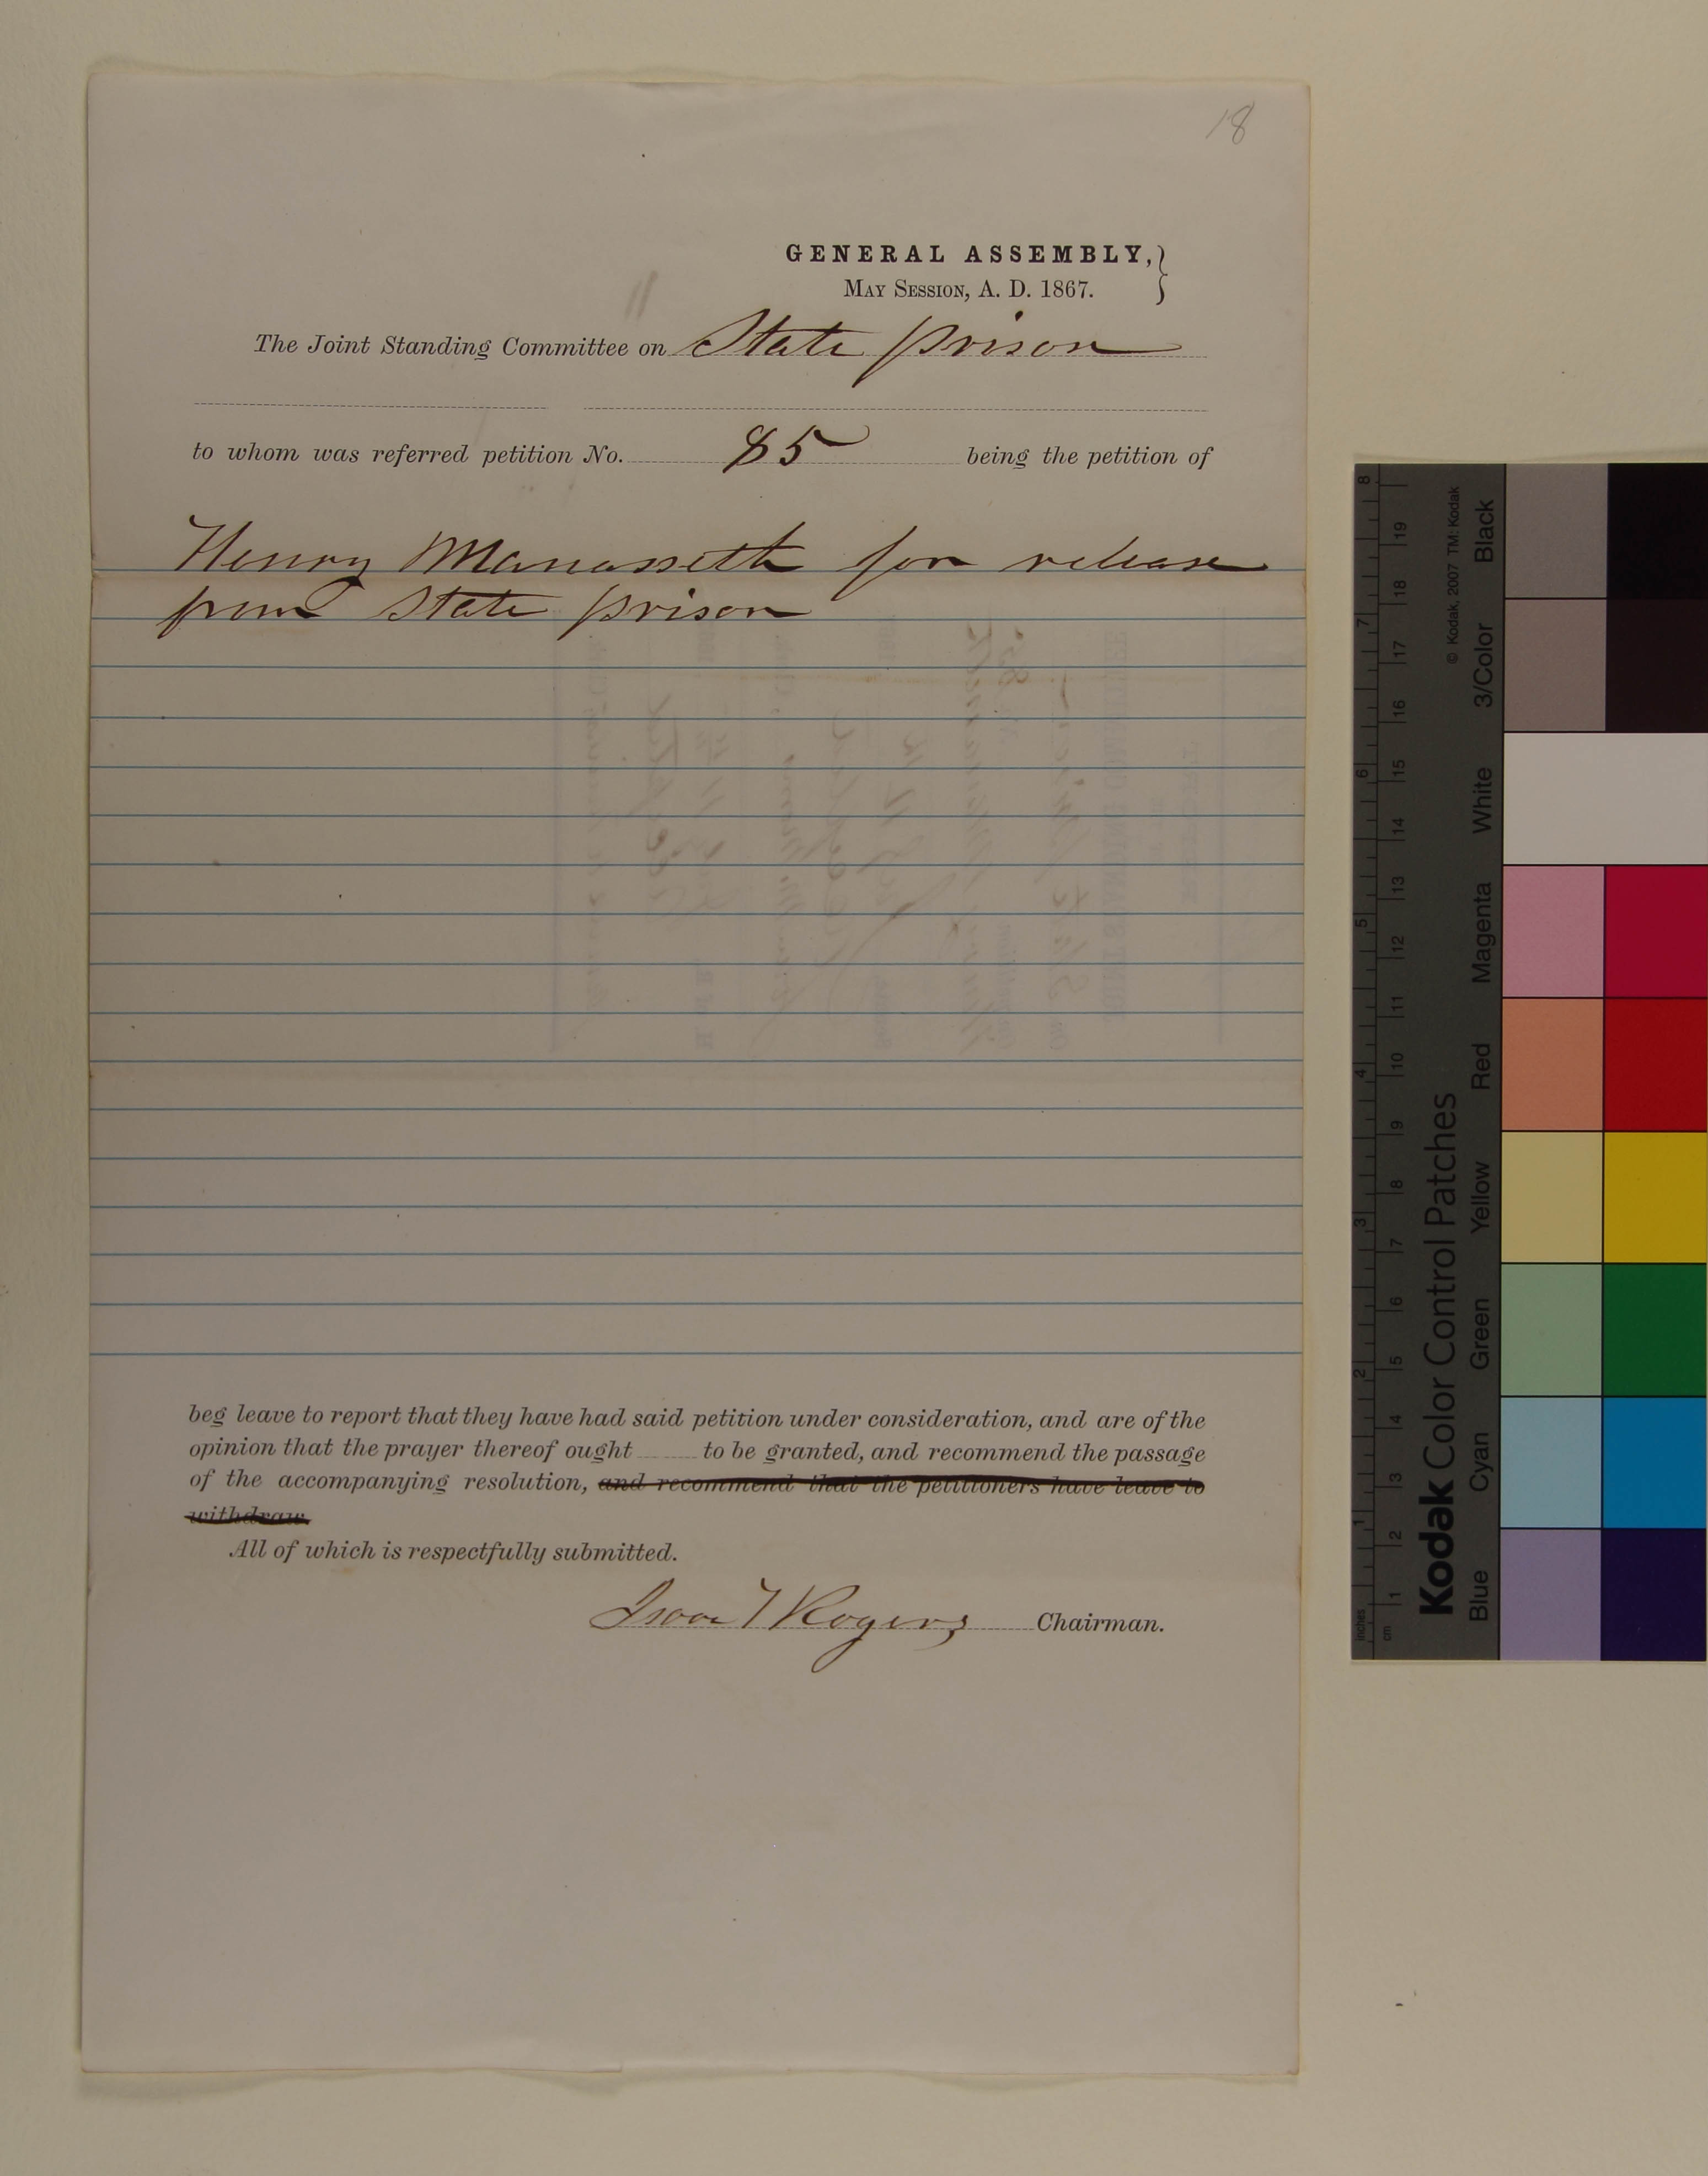 18
GENERAL ASSEMBLY,
MAY SESSION, A. D. 1867.
The Joint Standing Committee on State prison
to whom was referred petition No. 85 being the petition of
Henry Manasseth for release
from State prison
beg leave to report that they have had said petition under consideration, and are of the
opinion that the prayer thereof ought to be granted, and recommend the passage
of the accompanying resolution, and recommend that the petitioners have leave to
withdraw.
All of which is respectfully submitted.
Isaac T Rogers Chairman.
Kodak Color Control Patches
© Kodak, 2007 TM: Kodak
Blue Cyan Green Yellow Red Magenta White 3/Color Black
inches 1 2 3 4 5 6 7 8
cm 1 2 3 4 5 6 7 8 9 10 11 12 13 14 15 16 17 18 19